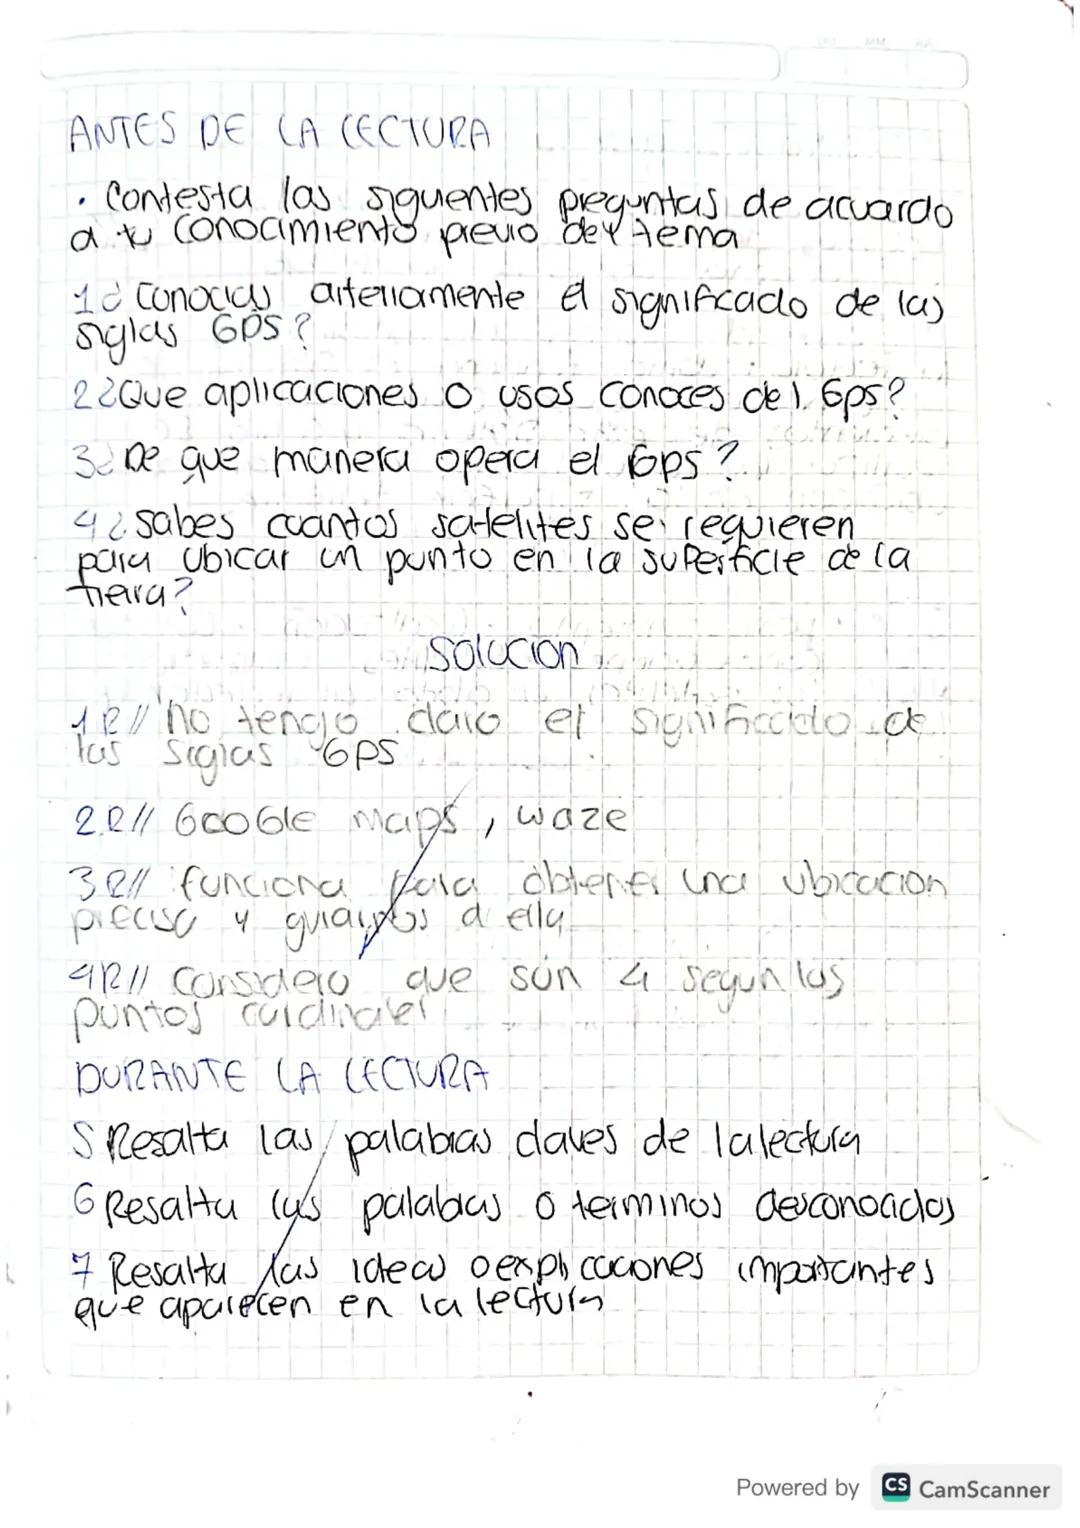 ANTES DE LA LECTURA
• Contesta las siguentes preguntas de acuardo
a tu conocimiento previo del tema
1¿ Conocias arteriamente el significado de las
siglas GPS?
2¿Que aplicaciones o usos conoces del Gps?
3¿ De que manera opera el Gps?
4¿ Sabes cuantos satelites se requieren
para ubicar un punto en la superficie de la
tierra?
Solucion
1R// no tengo claro el significado de
las siglas GPS
2R// GooGle maps, waze
3R// funciona para obtener una ubicacion
precisa y guiarnos a ella
4R// Considero que son 4 segun los
puntos cardinales
DURANTE LA LECTURA
5 Resalta las palabras claves de la lectura
6 Resalta las palabras o terminos desconocidos
7 Resalta las ideas o explicaciones importantes
que aparecen en la lectura
Powered by CS CamScanner